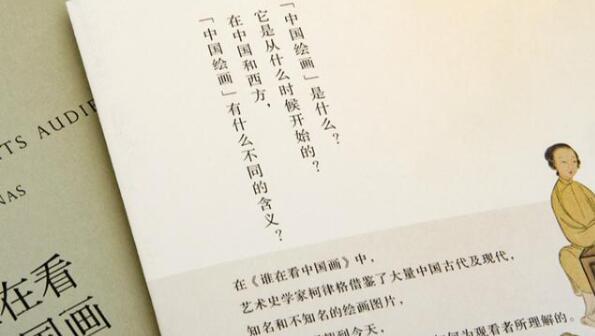 「中国绘画」是什么?
它是从什么时候开始的?
在中国和西方,
「中国绘画」有什么不同的含义?
在《谁在看中国画》中,
艺术史学家柯律格借鉴了大量中国古代及现代,
知名和不知名的绘画图片,
到今天, 为观看者所理解的。
TS AUDIE
NAS
在看
国画